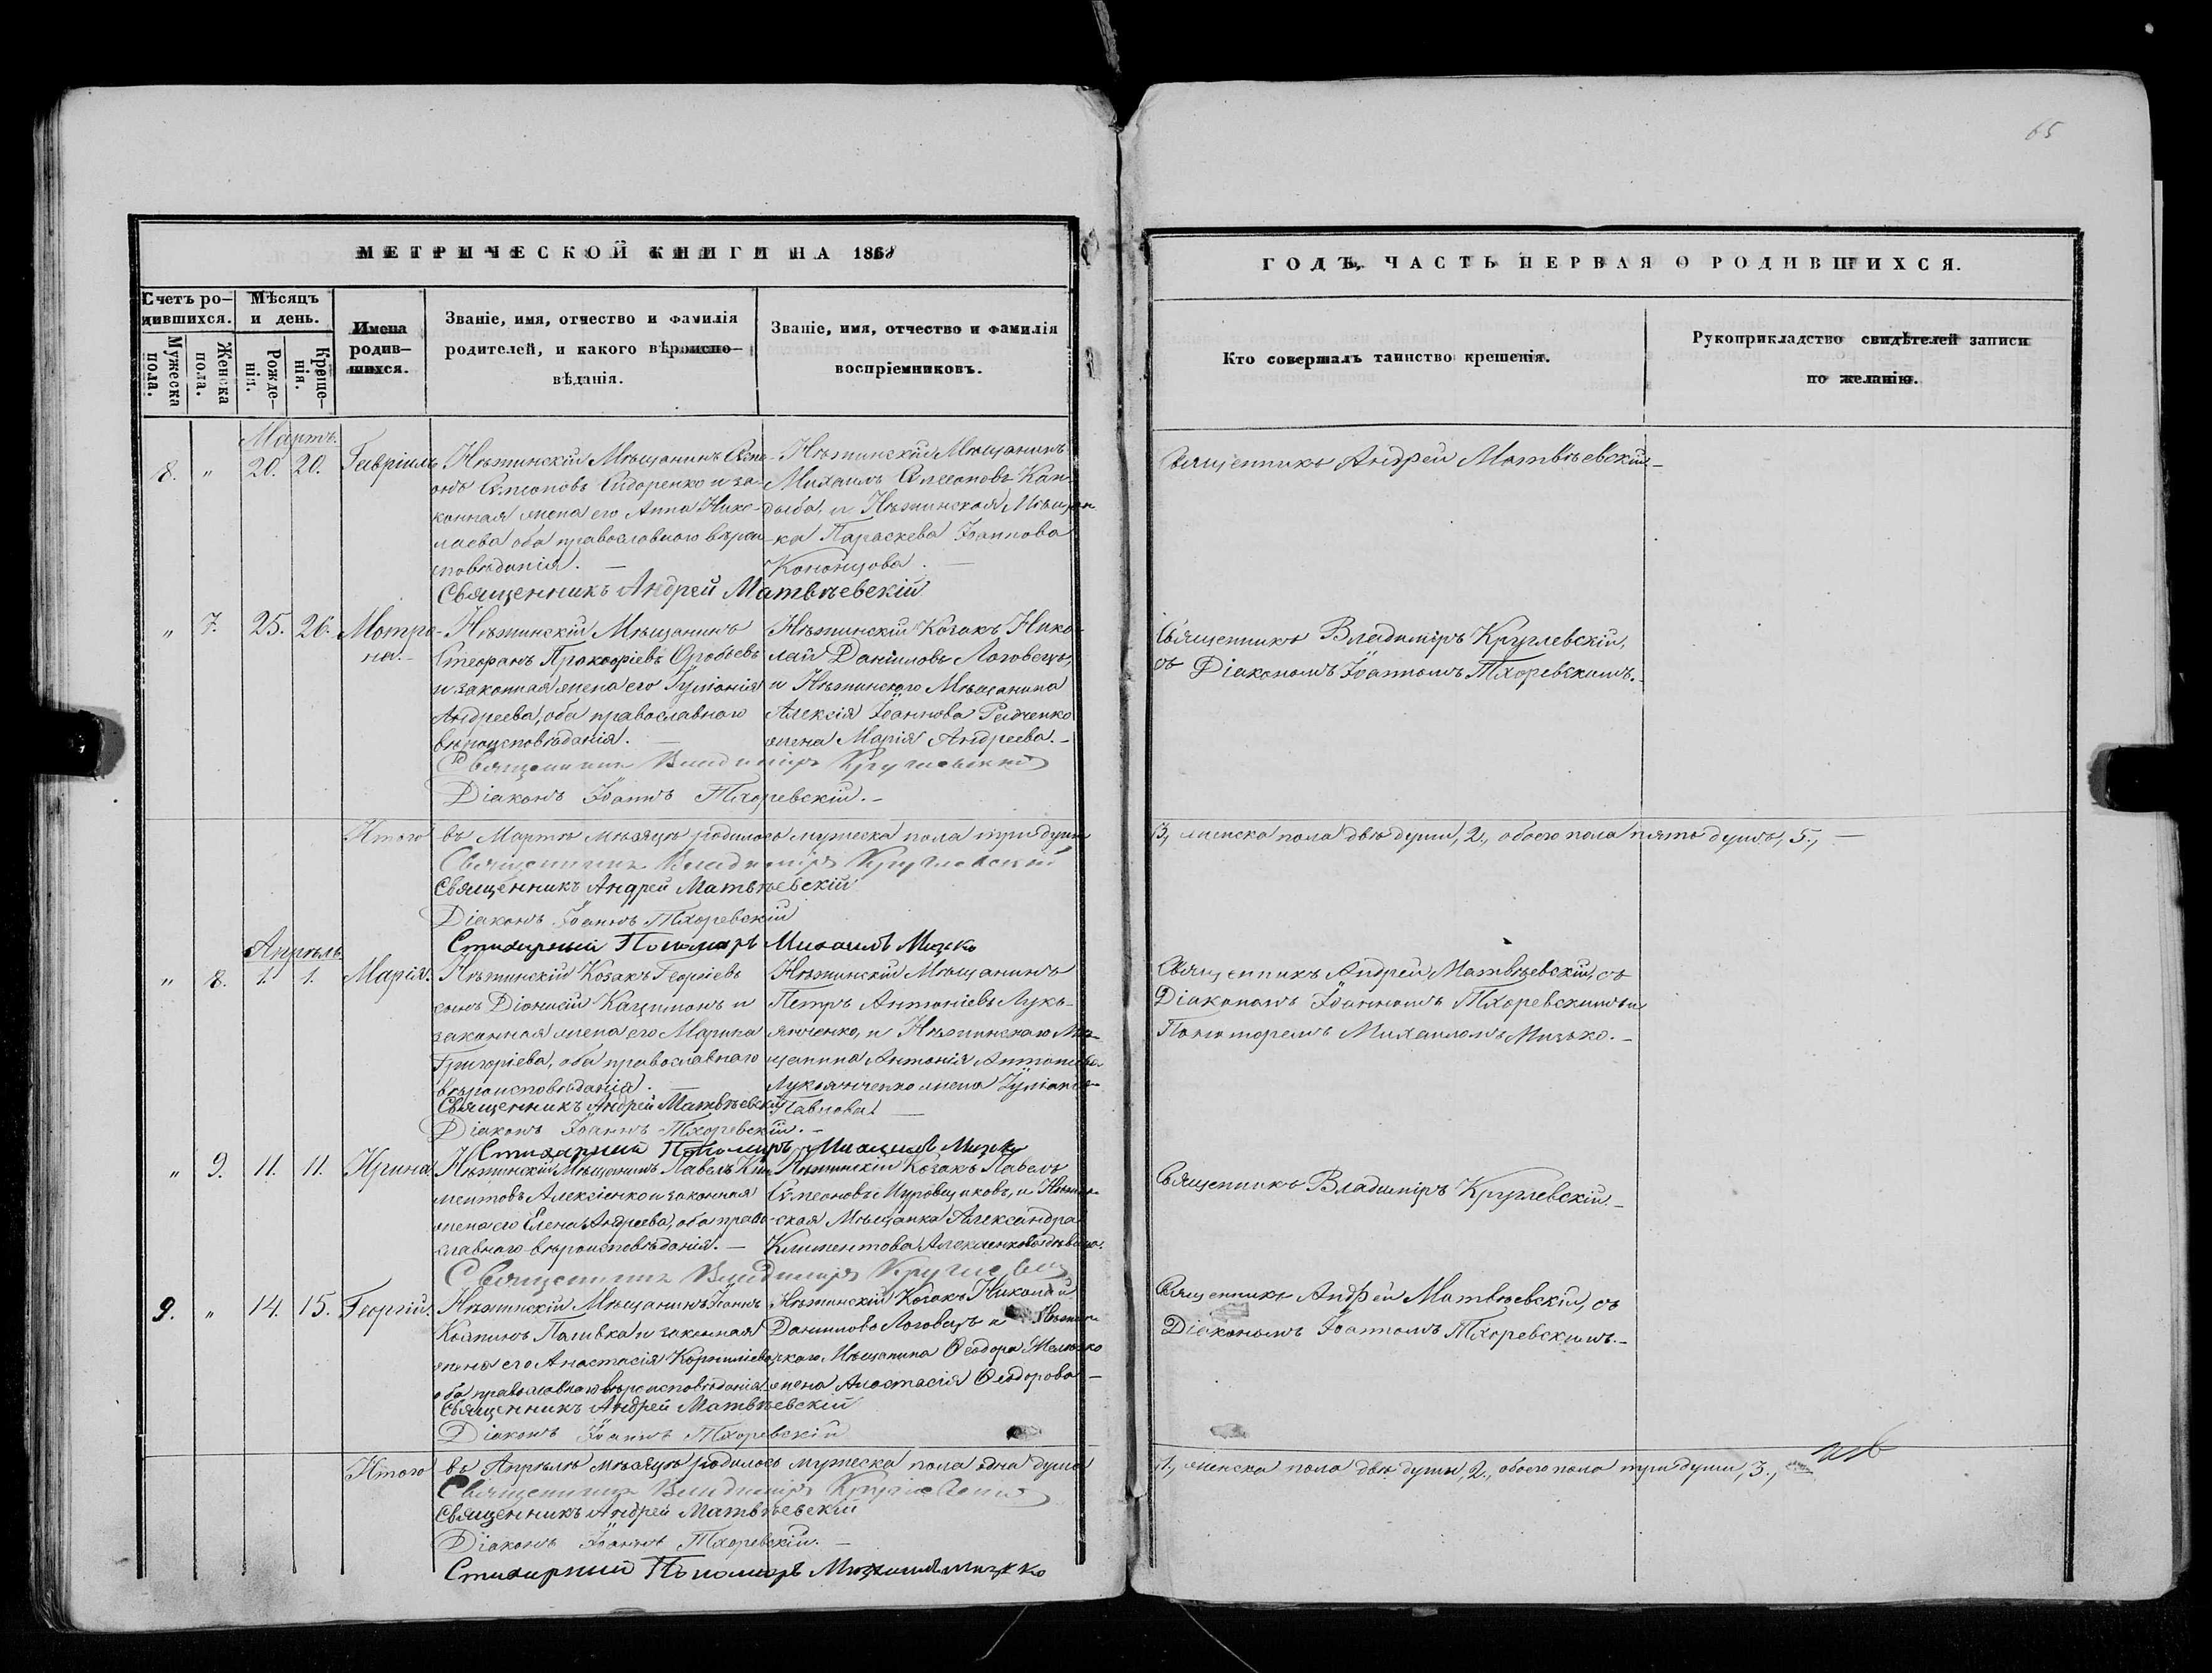 65
МЕТРИЧЕСКОЙ КНИГИ НА 1868
ГОДЪ, ЧАСТЬ ПЕРВАЯ О РОДИВШИХСЯ.
Счетъ ро-
дившихся.
Мужеска
пола.
Женска
пола.
Мѣсяцъ
и день.
Рожде-
нія.
Креще-
нія.
Имена
родив-
шихся.
Званіе, имя, отчество и фамилія
родителей, и какого вѣроиспо-
вѣданія.
Званіе, имя, отчество и фамилія
воспріемниковъ.
Кто совершалъ таинство крещенія.
Рукоприкладство свидѣтелей записи
по желанію.
Мартъ.
8. " 20. 20. Гавріилъ
Нѣжинскій Мѣщанинъ
онъ Сѵмеоновъ Сидоренко и за-
конная жена его Анна Нико-
лаева оба православнаго вѣрои
сповѣданія. —
Нѣжинскій Мѣщанинъ
Михаилъ Сѵмеоновъ Кан-
дыба, и Нѣжинская Мѣщан
ка Параскева Іоаннова
Кононцова. —
Священникъ Андрей Матвѣевскій
Священникъ Андрей Матвѣевскій. —
" 7. 25. 26. Мотро-
на. —
Нѣжинскій Мѣщанинъ
Стефанъ Прокофіевъ
и законная жена его Іуліанія
Андреева, оба православнаго
вѣроисповѣданія. —
Нѣжинскій Козакъ Нико-
лай Даніиловъ Логовецъ,
и Нѣжинскаго Мѣщанина
Алексія Іоаннова Редченко
жена Марія Андреева. —
Священникъ Владиміръ Круглевскій
Діаконъ Іоаннъ Тхоревскій. —
Священникъ Владиміръ Круглевскій,
съ Діакономъ Іоанномъ Тхоревскимъ. —
Итого въ Мартѣ мѣсяцѣ родилось мужеска пола три души
3, женска пола двѣ души, 2., обоего пола пять душъ, 5., —
Священникъ Владиміръ Круглевскій
Священникъ Андрей Матвѣевскій
Діаконъ Іоаннъ Тхоревскій
Стихарный Пономарь Михаилъ Мизко
Апрѣль
" 8. 1. 1. Марія.
Нѣжинскій Козакъ Георгіевъ
сынъ Діонисій Кацимонъ и
законная жена его Марина
Григоріева, оба православнаго
вѣроисповѣданія. —
Нѣжинскій Мѣщанинъ
Петръ Антоніевъ Лукь-
янченко, и Нѣжинскаго Мѣ-
щанина Антонія Антоніева
Лукьянченко жена Іуліанія
Павлова. —
Священникъ Андрей Матвѣевскій
Діаконъ Іоаннъ Тхоревскій. —
Стихарный Пономарь Михаилъ Мизко
Священникъ Андрей Матвѣевскій, съ
Діакономъ Іоанномъ Тхоревскимъ и
Пономаремъ Михаиломъ Мизько. —
" 9. 11. 11. Ирина
Нѣжинскій Мѣщанинъ Павелъ Кли
ментовъ Алексіенко и законная
жена его Елена Андреева, оба право-
славнаго вѣроисповѣданія. —
Нѣжинскій Козакъ Павелъ
Сѵмеоновъ Муровщиковъ, и Нѣжин-
ская Мѣщанка Александра
Климентова Алексіенкова дѣвица.
Священникъ Владиміръ Круглевскій
Священникъ Владиміръ Круглевскій. —
9. " 14. 15. Георгій.
Нѣжинскій Мѣщанинъ Іоаннъ
Паливка и законная
жена его Анастасія Корниліева
оба православнаго вѣроисповѣданія
Нѣжинскій Козакъ Николай
Даниловъ Логовецъ и Нѣжин
скаго Мѣщанина Ѳеодора
жена Анастасія Ѳеодорова —
Священникъ Андрей Матвѣевскій
Діаконъ Іоаннъ Тхоревскій
Священникъ Андрей Матвѣевскій, съ
Діакономъ Іоанномъ Тхоревскимъ. —
Итого въ Апрѣлѣ мѣсяцѣ родилось мужеска пола одна душа
1., женска пола двѣ души, 2., обоего пола три души, 3.,
Священникъ Владиміръ Круглевскій
Священникъ Андрей Матвѣевскій
Діаконъ Іоаннъ Тхоревскій. —
Стихарный Пономарь Михаилъ Мизко